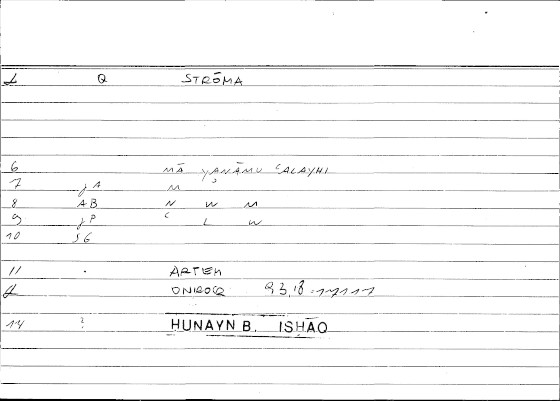 1 Q STRŌMA
6 MĀ YANĀMU ʿALAYHI
7 jA M ʾ
8 AB N W M
9 jP ʿ L W
10 SG
11 . ARTEM
ONIROCR
14 ? HUNAYN B. ISHĀQ